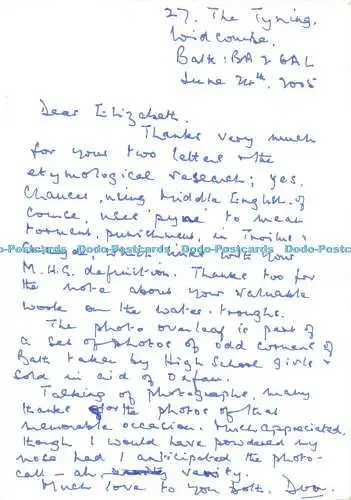 27, The Tyning,
Widcombe,
Bath: BA2 6AL
June 24th, 2005
Dear Elizabeth,
Thanks very much
for your two letters & the
etymological research; yes,
Chaucer, using Middle English of
course, uses pyne to mean
torment, punishment, in Troilus &
which links with your
Dodo-Postcards Dodo-Postcards Dodo-Postcards Dodo-Postcards
M.H.G. definition. Thanks too for
the note about your valuable
work on the water-troughs.
The photo overleaf is part of
a set of photos of odd corners of
Bath taken by High School girls &
sold in aid of Oxfam.
Talking of photographs, many
thanks for the photos of that
memorable occasion. Much appreciated,
though I would have powdered my
nose had I anticipated the photo-
call – ah vanity vanity.
Much love to you both.